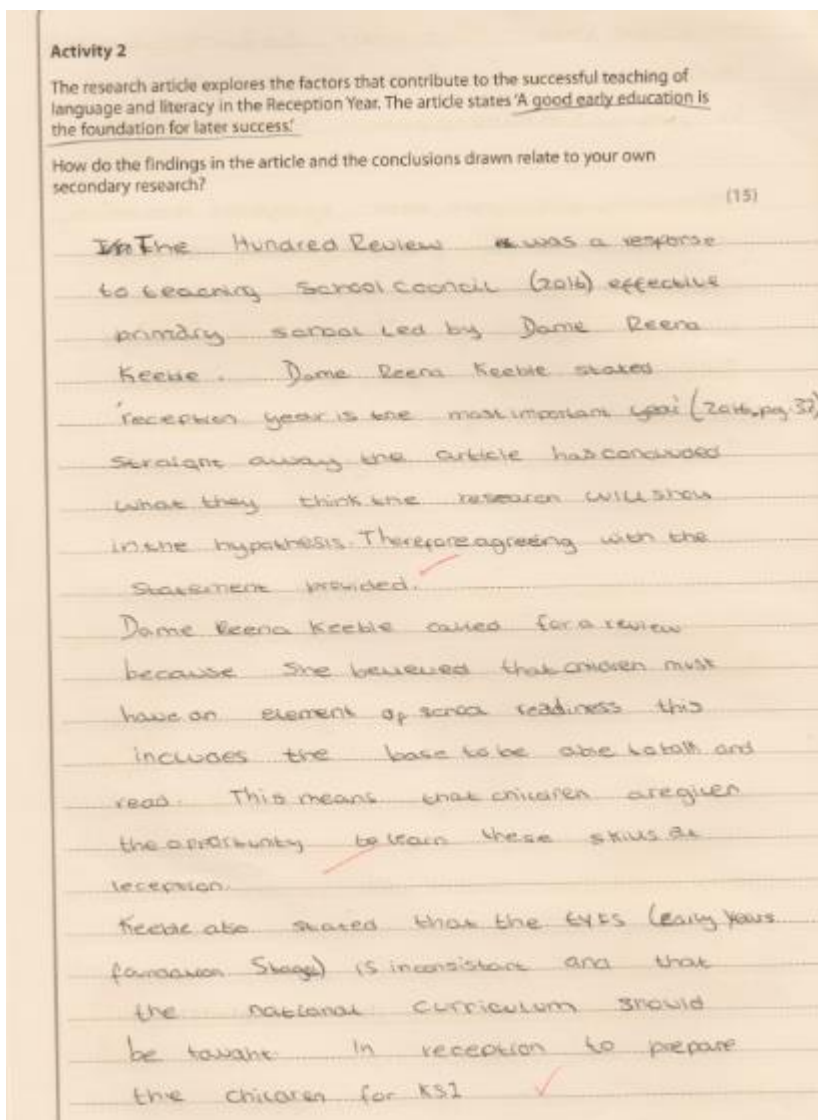 Activity 2
The research article explores the factors that contribute to the successful teaching of
language and literacy in the Reception Year. The article states 'A good early education is
the foundation for later success.'
How do the findings in the article and the conclusions drawn relate to your own
secondary research?
(15)
The Hundred Review was a response
to teaching School Council (2016) effective
primary school led by Dame Reena
Keeble. Dame Reena Keeble stated
'reception year is the most important year' (2016, pg. 32)
straight away the article has concluded
what they think the research will show
in the hypothesis. Therefore agreeing with the
statement provided.
Dame Reena Keeble called for a review
because she believed that children must
have an element of school readiness this
includes the base to be able to talk and
read. This means that children are given
the opportunity to learn these skills at
reception.
Keeble also stated that the EYFS (early years
foundation Stage) is inconsistant and that
the national curriculum should
be taught in reception to prepare
the children for KS1